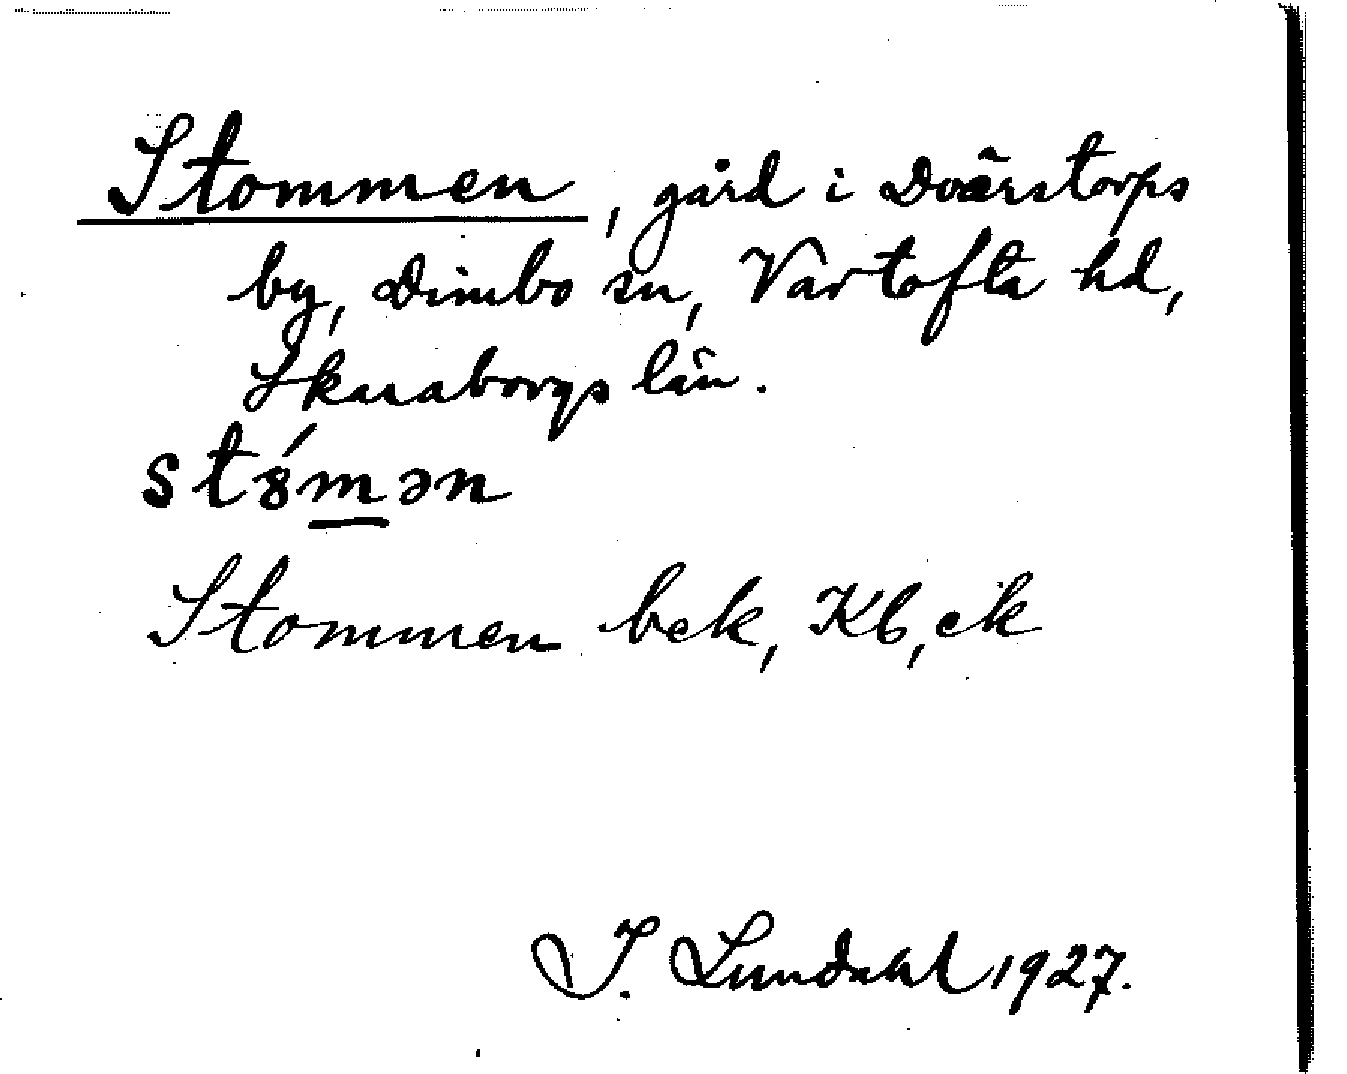 Stommen, gård i Dvärstorps
by, Dimbo sn, Vartofta hd,
Skaraborgs län.
stɤ́mən
Stommen bek, Kb, ek
I. Lundahl 1927.